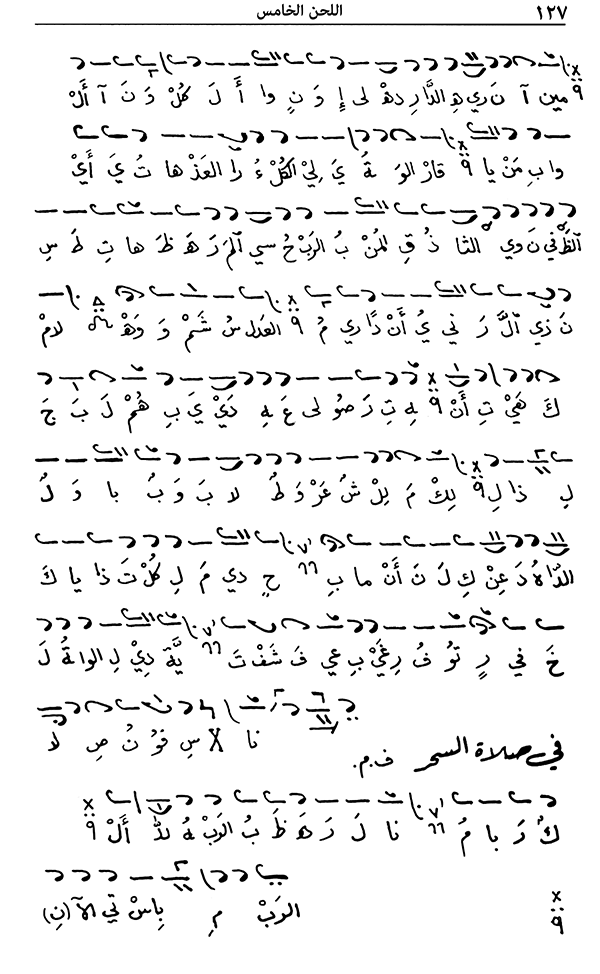 ١٢٧ اللحن الخامس
مين آ نَ ري هِ الدَّا رِ دهْ لى إِ وَ نِ وا أَ لَ كُلْ وَ نَ آ أَلْ
وا بِ مَنْ يا قازْ الوَ ةُ يَ لِيْ الكُلْ ءُ را العَذْ ها تُ يَ أَيْ
الظَّ في نَ وي التا ذُ قِ لمُنْ بُ الرَبْ حُ سي المَ رَ هَ ظَ ها تِ طَ سِ
نَ ذي الَّ رَ ني يُ أَنْ دًا ري مُ العدل سُ شَمْ وَ وَهْ لامْ
كَ هَيْ تِ أَنْ لهِ تِ رَ ضو لى عَ لهِ دَيْ يَ بِ هُمْ لَ بَ جَ
لِ ذا لِ لِكْ مَ لِلْ شُ عَرْ وَ طُ لا بَ وَ بُ با وَ لُ
الدّاهُ دَ عِنْ كِ لَ نَ أَنْ ما بِ حٍ دي مَ لِ كُلْ تَ ذا يا كَ
خَ في رِ تو فُ رِغَّيْ بِ عي فَ شَفْ تَ يَّةَ دِيْ لِ الوا ةُ لَ
نا X سِ فو نُ صِ لا
في صلاة السحر ف.م.
كُ رَ با مُ نا لَ رَ هَ ظَ بُ الرَبْ هُ للا أَلْ
الرَبْ مِ بِاسْ تي الآ (نِ)